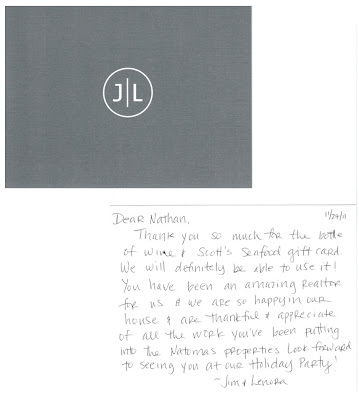 J|L
Dear Nathan, 11/29/11
Thank you so much for the bottle
of wine & Scott's Seafood gift card.
We will definitely be able to use it!
You have been an amazing Realtor
for us & we are so happy in our
house & are thankful & appreciate
of all the work you've been putting
into the Natomas properties. Look forward
to seeing you at our Holiday Party!
-Jim & Lenora